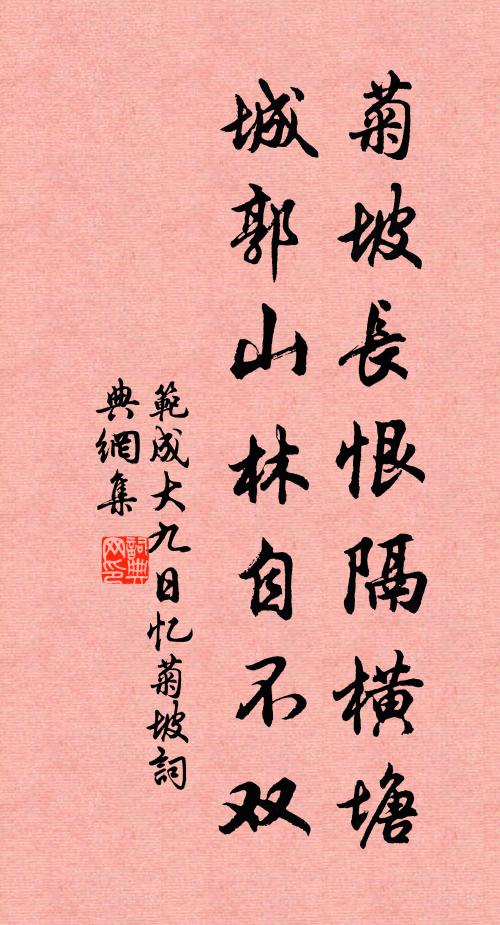 菊坡長恨隔橫塘
城郭山林自不双
範成大九日忆菊坡詞
典網集
詞典网印